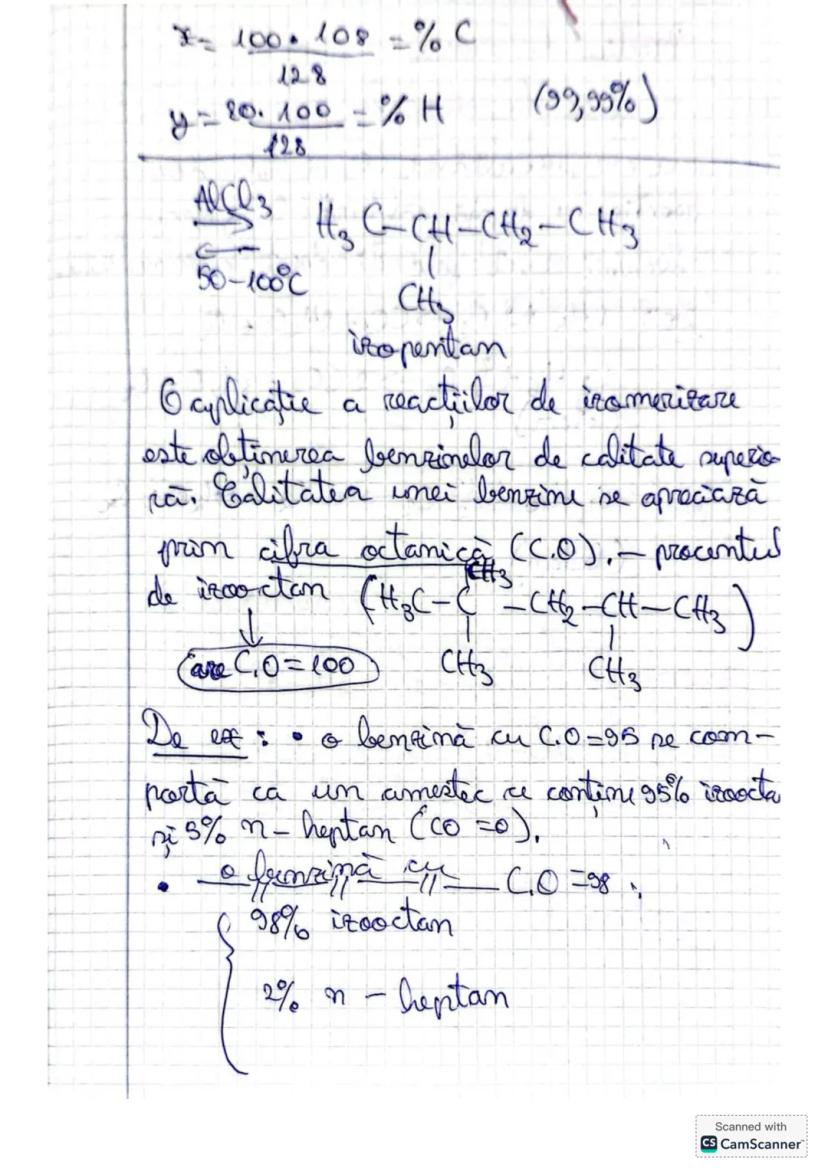 x = 100 • 108 / 128 = % C
y = 20 • 100 / 128 = % H (99,99%)
AlCl3
H3C–CH–CH2–CH3
50–100°C
CH3
izopentan
O aplicație a reacțiilor de izomerizare
este obținerea benzinelor de calitate superio-
ră. Calitatea unei benzine se apreciază
prin cifra octanică (C.O). – procentul
CH3
de izooctan (H3C–C–CH2–CH–CH3)
are C.O = 100 CH3 CH3
De ex : • o benzină cu C.O = 95 se com-
portă ca un amestec ce conține 95% izoocta
și 5% n – heptan (CO = 0).
• o benzină cu –//– C.O = 98
98% izooctan
2% n – heptan
Scanned with
CS CamScanner